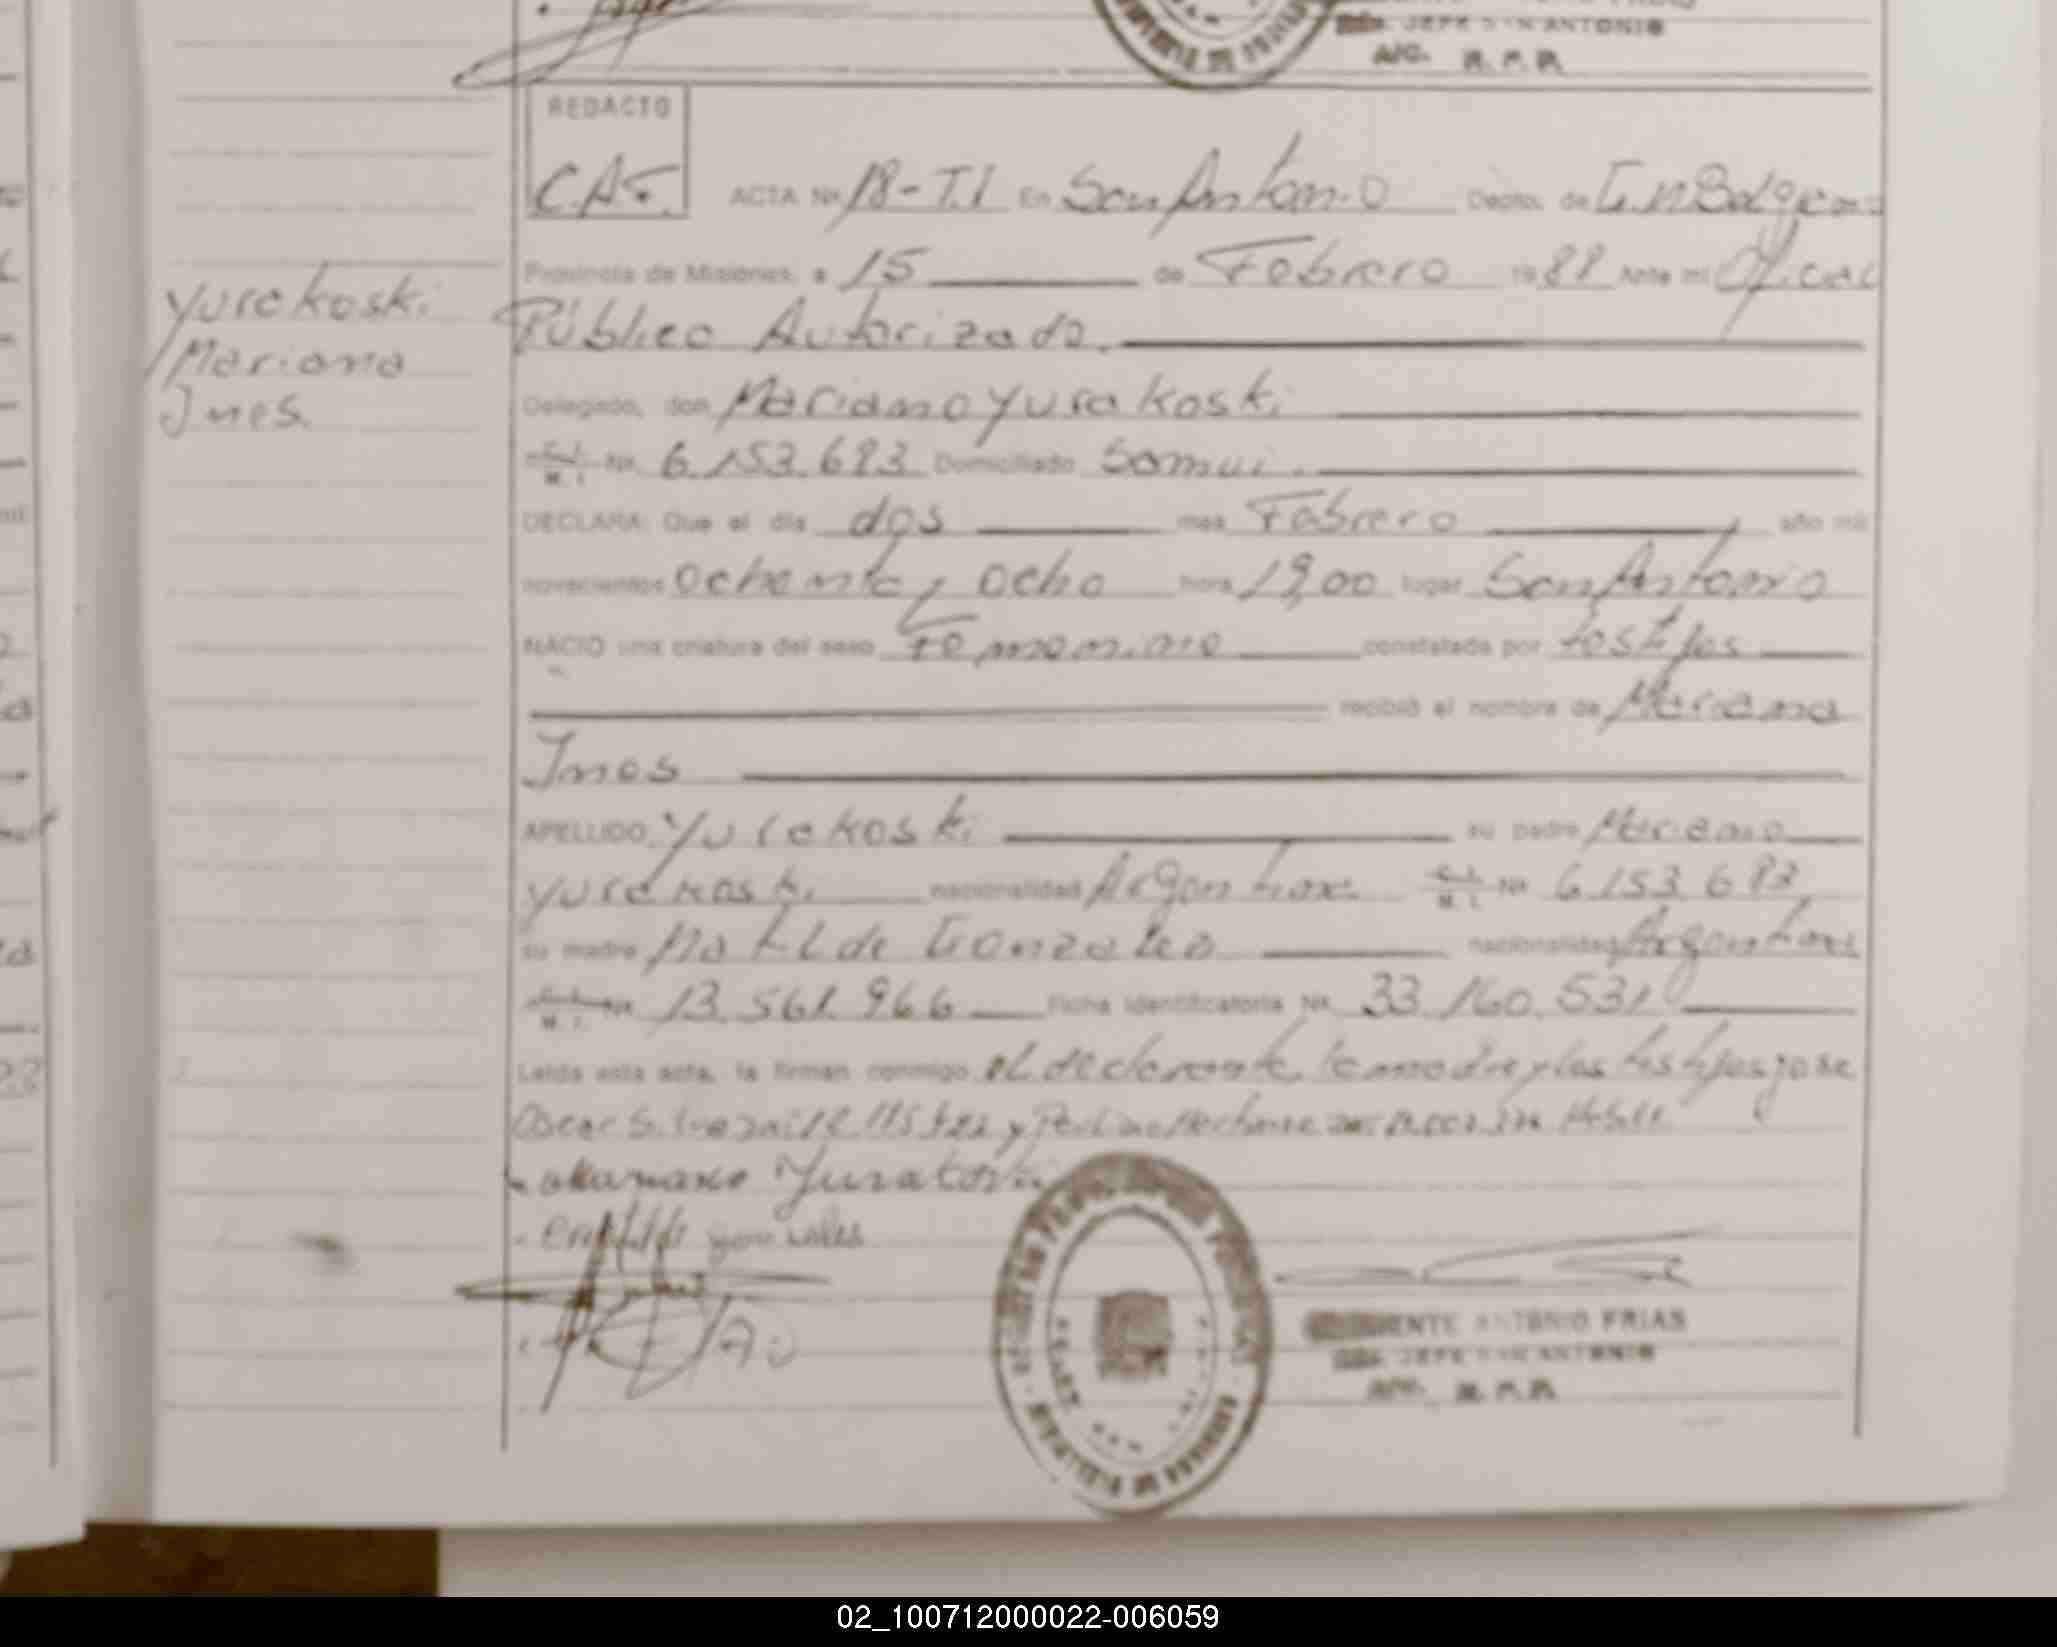 JEFE SAN ANTONIO
A/C. R. P. P.
REDACTO
C.A.F.
ACTA Nº 18-T.I En San Antonio Depto. de G.M Belgrano
Provincia de Misiones, a 15 de Febrero 1988 Ante mi Oficial
Público Autorizado.
Delegado, don Mariano Yurakoski
C. I. M. I. Nº 6.153.683 Domiciliado
DECLARA: Que el día dos mes Febrero año mil
novecientos ochenta y ocho hora 19,00 lugar San Antonio
NACIO una criatura del sexo Femenino constatada por testigos
recibió el nombre de Mariana
Ines
APELLIDO Yurakoski su padre Mariano
Yurakoski nacionalidad Argentina C. I. M. I. Nº 6.153.683
su madre Matilde Gonzalez nacionalidad Argentina
C. I. M. I. Nº 13.561.966 Ficha Identificatoria Nº 33.160.531
Leída esta acta, la firman conmigo el declarante, la madre y los testigos Jose
Oscar
Yurakoski
Mariana
Ines.
ANTONIO FRIAS
JEFE SAN ANTONIO
R. P. P.
PROVINCIA DE MISIONES
02_100712000022-006059